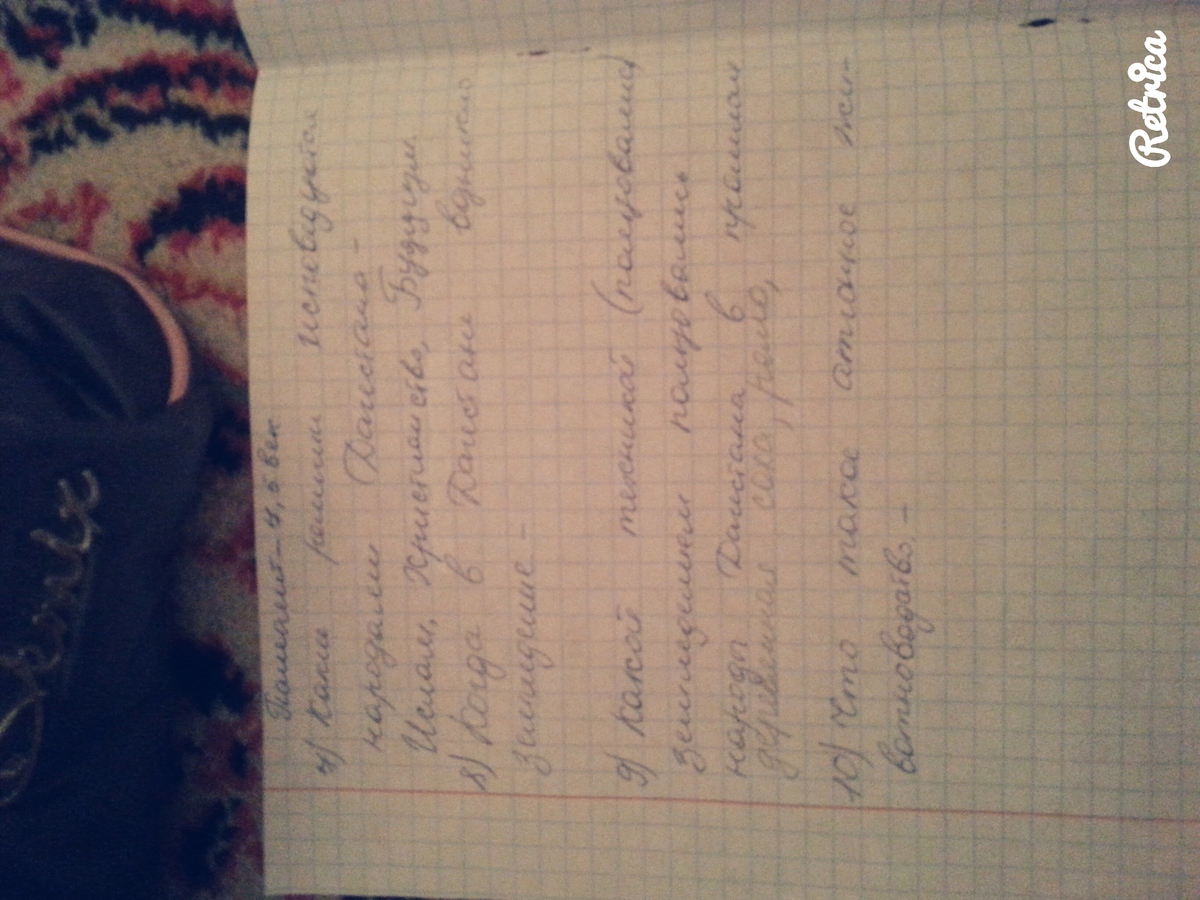 Памалит - 4, 5 век
7) Какие религии исповедуется
народами Дагестана -
Ислам, Християнство, Буддизм
8) Когда в Дагестане возникло
земледелие -
9) Какой техникой (пользовались)
земледелием пользовались
народы Дагестана в прошлом
деревянная соха, рало,
10) Что такое отгонное жи-
вотноводство. -
Retrica